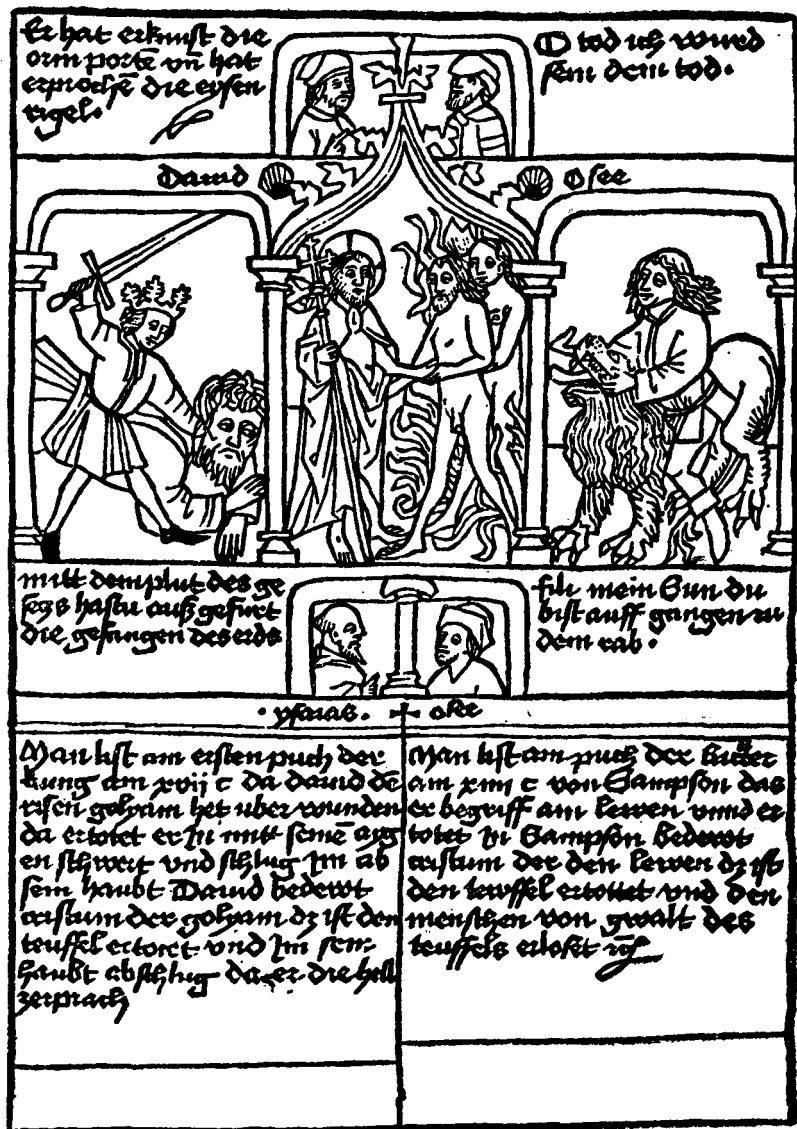 Er hat erknust die
orin porte vn̄ hat
erprochē die eysen
rigel.
O tod ich wurd
sein dein tod.
Dauid
Osee
mitt dem plut des ge
seczs hastu auß gefurt
die gefangen des erds
fili mein Sun du
bist auff gangen zu
dem rab.
ysaias.
osee
Man list am ersten puch der
kung am xvij c da dauid dē
risen golyam het uber wunden
da ertotet er In mitt seinē ayg
en schwert vnd schlug Im ab
sein haubt Dauid bedewt
cristum der golyam dz ist den
teuffel ertotet vnd Im sein
haubt abschlug da er die hell
zerprach
Man list am puch der Richter
am xiiij c von Sampson das
er begriff ain lewen vnnd er
totet In Sampson bedewt
cristum der den lewen dz ist
den tewffel ertottet vnd den
menschen von gwalt des
teuffels erloset